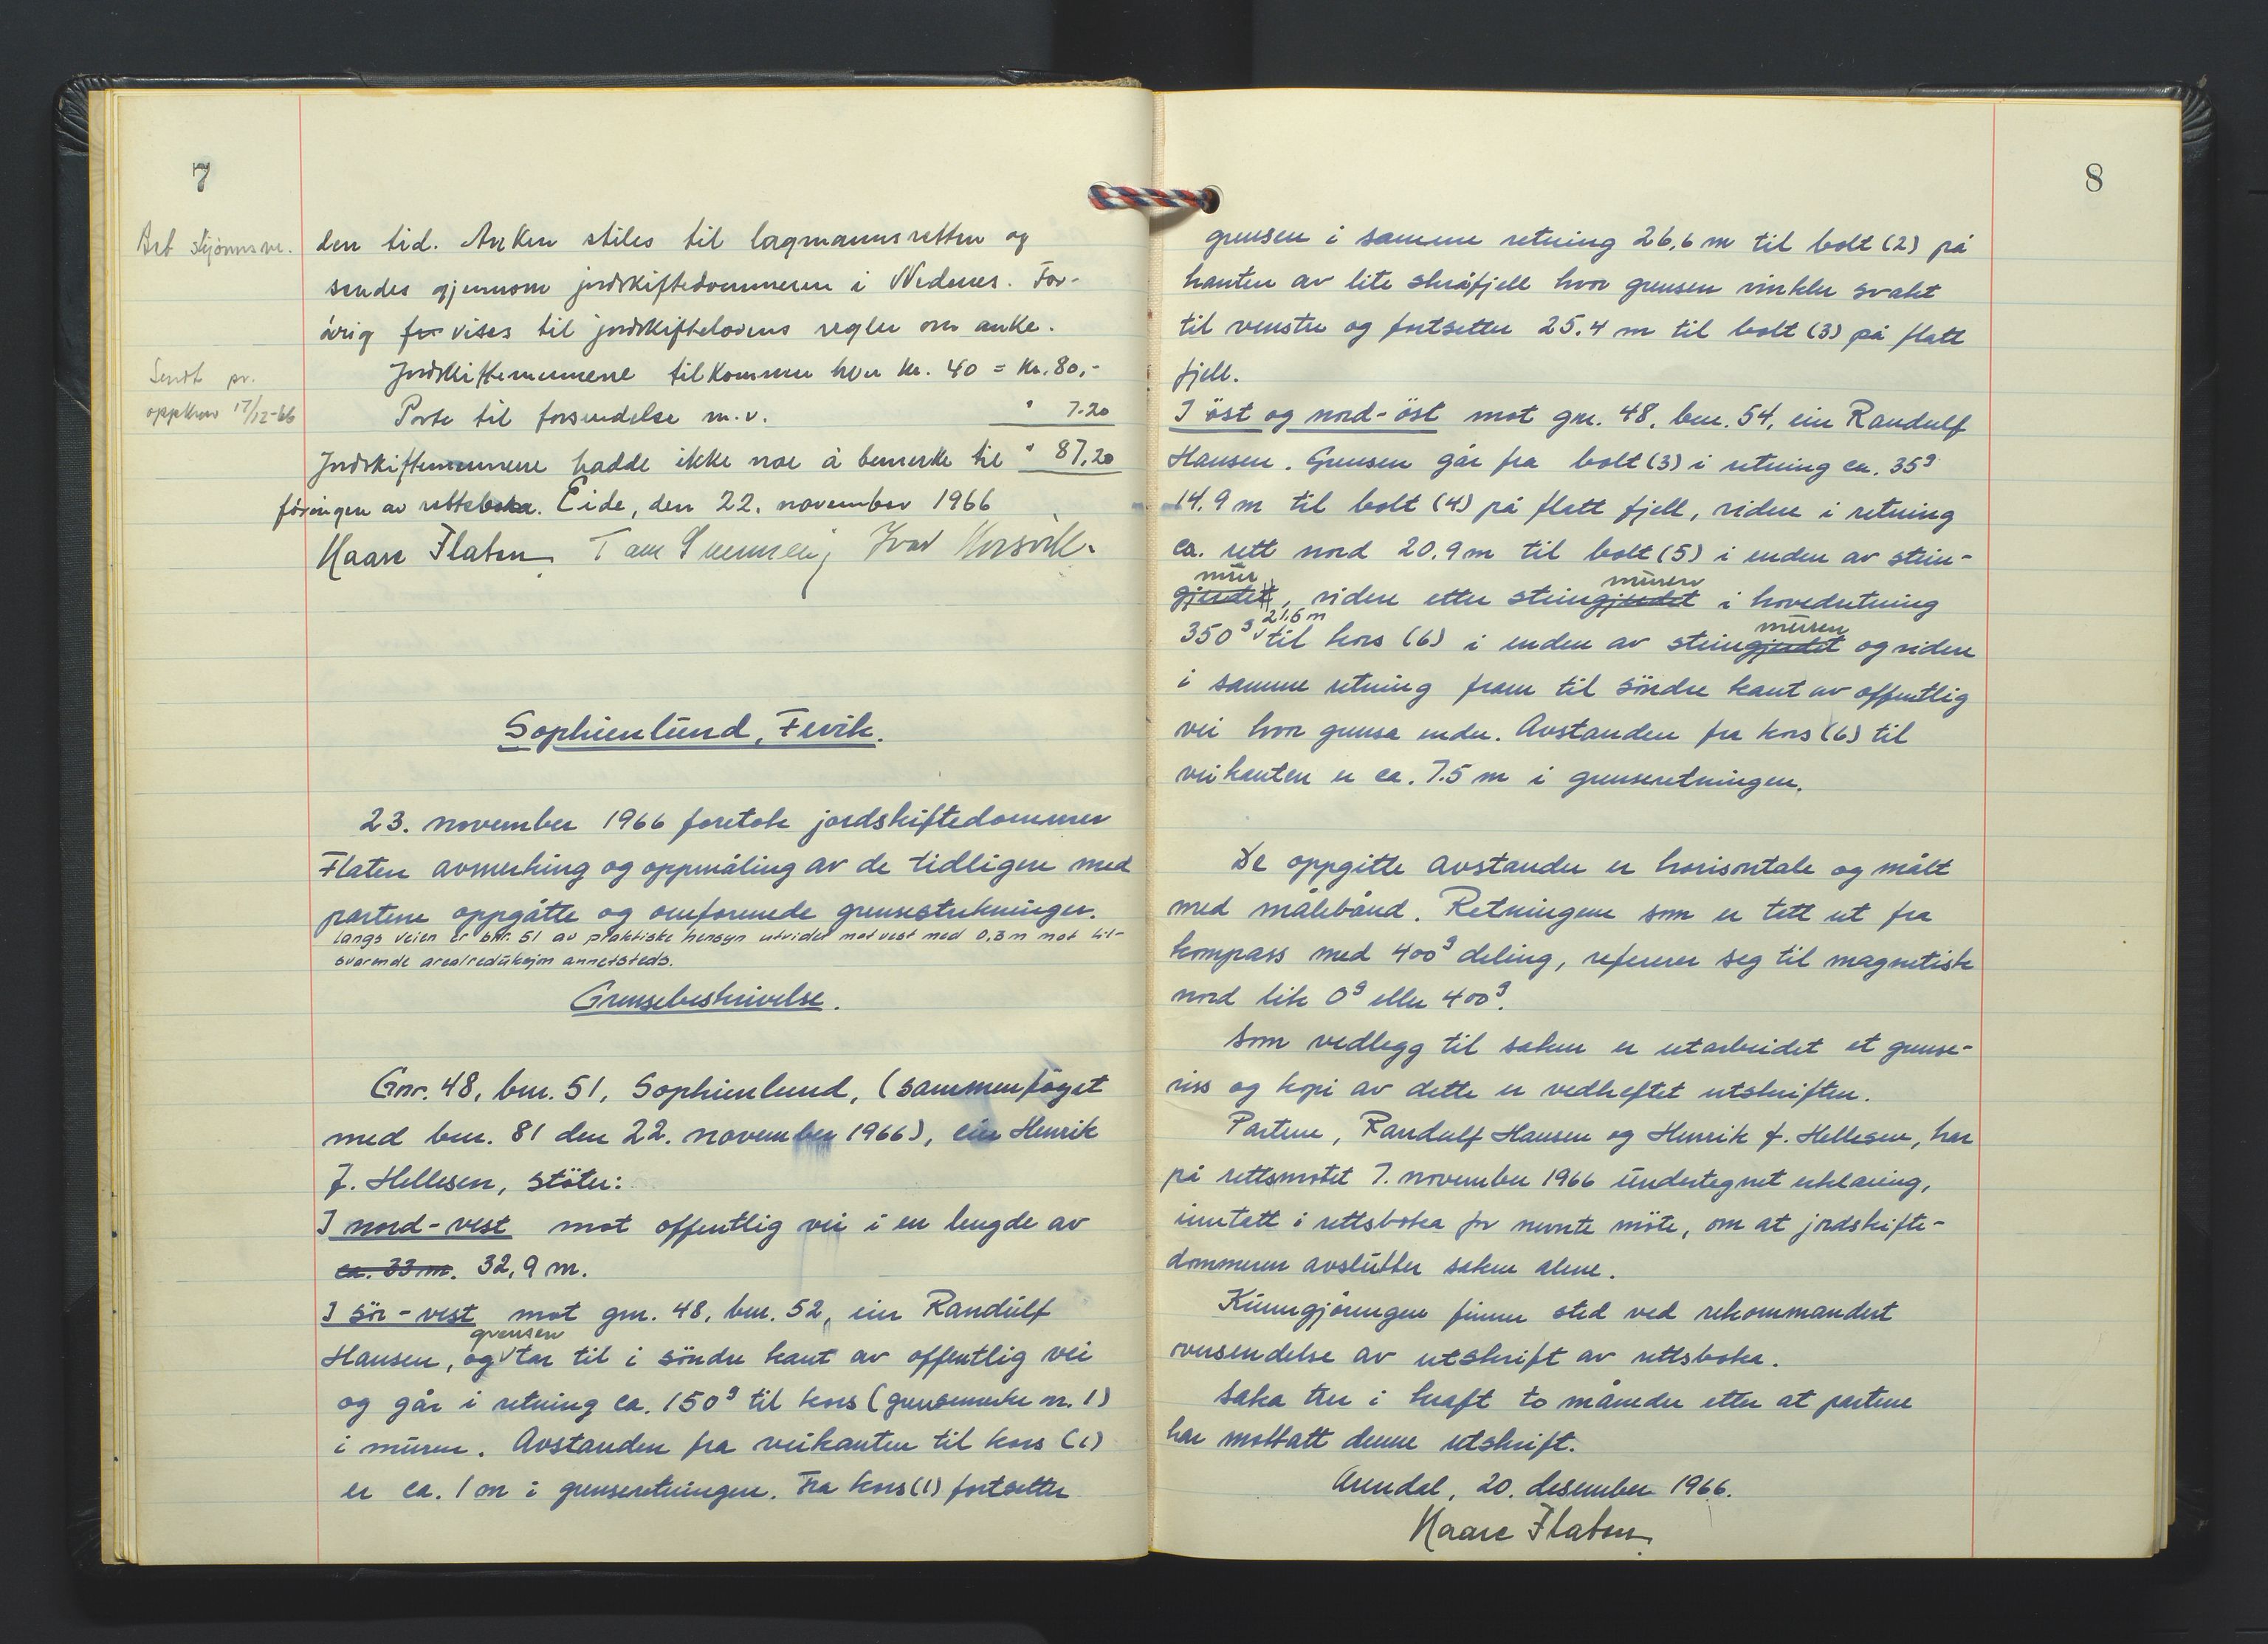 7
den tid. Anken stiles til lagmannsretten og
sendes gjennom jordskiftedommeren i Nedenes. For-
øvig for vises til jordskiftelovens regler om anke.
Sendt pr.
oppkrav 17/12-66
Jordskiftemennene tilkommer hver kr. 40 = kr. 80,-
Porto til forsendelse m.v. " 7.20
Jordskiftemennene hadde ikke noe å bemerke til " 87,20
føringen av rettsboka. Eide, den 22. november 1966
Kaare Flaten
Sophienlund, Fevik.
23. november 1966 foretok jordskiftedommer
Flaten avmerking og oppmåling av de tidligere med
partene oppgåtte og omforenede grensestrekninger.
langs veien er bnr. 51 av praktiske hensyn utvidet mot vest med 0,3 m mot til-
svarende arealreduksjon annetsteds.
Grensebeskrivelse.
Gnr. 48, bnr. 51, Sophienlund, (sammenføyet
med bnr. 81 den 22. november 1966), eier Henrik
J. Hellesen, støter:
I nord-vest mot offentlig vei i en lengde av
ca. 33 m. 32,9 m.
I sør-vest mot gnr. 48, bnr. 52, eier Randulf
Hansen, og grensen tar til i søndre kant av offentlig vei
og går i retning ca. 150g til kors (grensemerke nr. 1)
i muren. Avstanden fra veikanten til kors (1)
er ca. 1 m i grenseretningen. Fra kors (1) fortsetter
8
grensen i samme retning 26,6 m til bolt (2) på
kanten av lite skråfjell hvor grensen vinkler svakt
til venstre og fortsetter 25.4 m til bolt (3) på flatt
fjell.
I øst og nord-øst mot gnr. 48, bnr. 54, eier Randulf
Hansen. Grensen går fra bolt (3) i retning ca. 35g
14,9 m til bolt (4) på flatt fjell, videre i retning
ca. rett nord 20,9 m til bolt (5) i enden av stein-
mur gjerdet, videre etter steingjerdet muren i hovedretning
350g 21,6 m til kors (6) i enden av steingjerdet muren og videre
i samme retning fram til søndre kant av offentlig
vei hvor grensa ender. Avstanden fra kors (6) til
veikanten er ca. 7.5 m i grenseretningen.
De oppgitte avstander er horisontale og målt
med målebånd. Retningene som er tatt ut fra
kompass med 400g deling, refererer seg til magnetisk
nord lik 0g eller 400g.
Som vedlegg til saken er utarbeidet et grense-
riss og kopi av dette er vedheftet utskriften.
Partene, Randulf Hansen og Henrik J. Hellesen, har
på rettsmøtet 7. november 1966 undertegnet erklæring,
inntatt i rettsboka for nevnte møte, om at jordskifte-
dommeren avslutter saken alene.
Kunngjøringen finner sted ved rekommandert
oversendelse av utskrift av rettsboka.
Saka trer i kraft to måneder etter at partene
har mottatt denne utskrift.
Arendal, 20. desember 1966.
Kaare Flaten